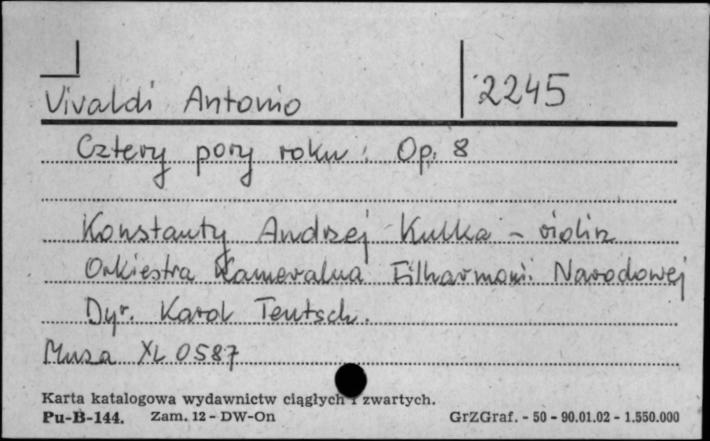 Vivaldi Antonio 2245
Cztery pory roku. Op. 8
Konstanty Andrzej Kulka - violin
Orkiestra Kameralna Filharmonii Narodowej
Dyr. Karol Teutsch.
Muza XL 0587
Karta katalogowa wydawnictw ciągłych i zwartych.
Pu-B-144. Zam. 12 - DW-On GrZGraf. - 50 - 90.01.02 - 1.550.000